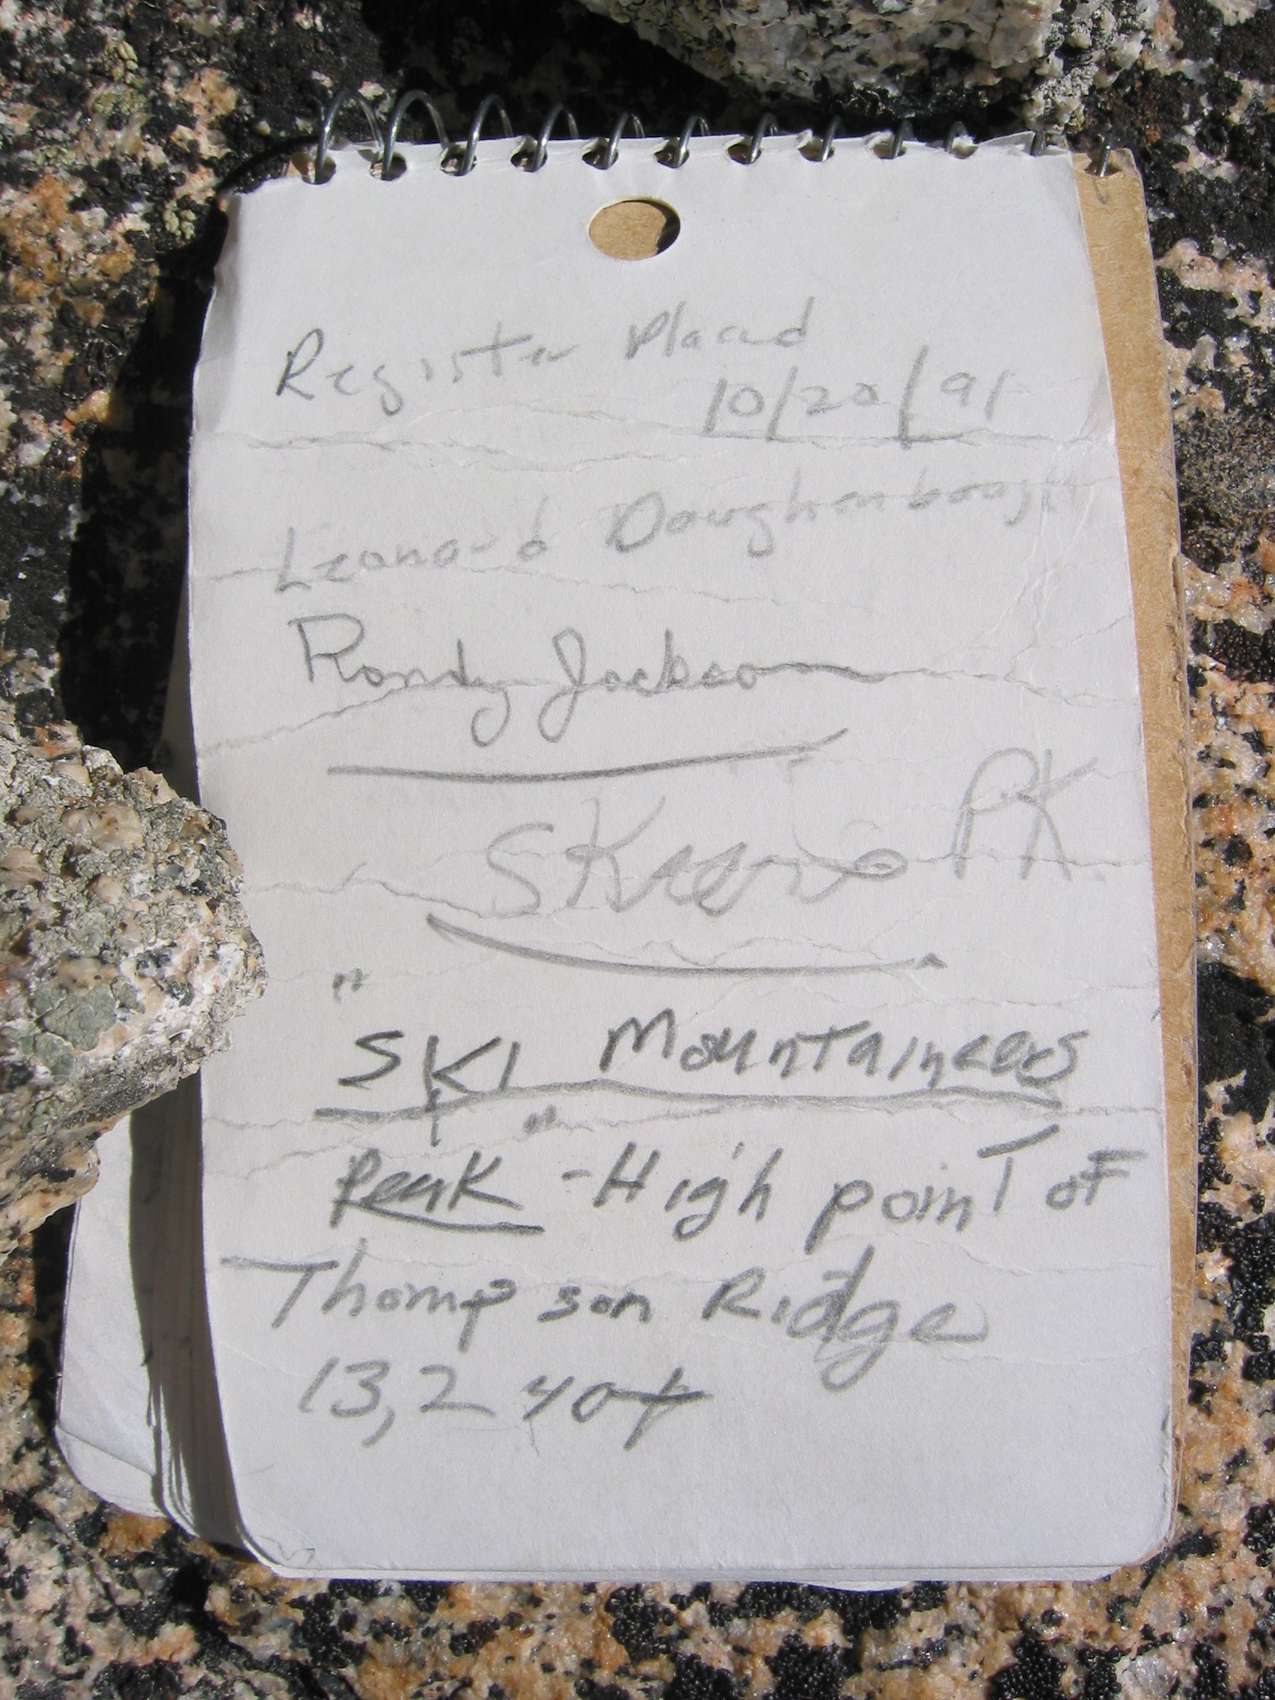 Register Placed
10/20/91
Leonard Daughenbaugh
Randy Jackson
SKeeno PK.
"SKI Mountaineers"
Peak - High point of
Thompson Ridge
13,240+